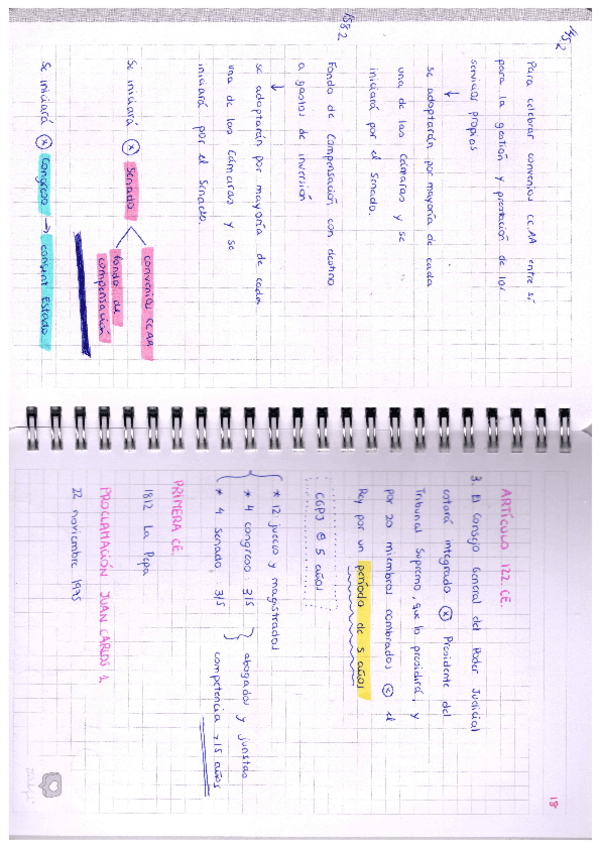 145.2
Para celebrar convenios CC.AA entre sí
para la gestión y prestación de los
servicios propios
↓
se adoptarán por mayoría de cada
una de las Cámaras y se
iniciará por el Senado.
158.2
Fondo de Compensación con destino
a gastos de inversión
↓
se adoptarán por mayoría de cada
una de las Cámaras y se
iniciará por el Senado.
Se iniciará (x) Senado
convenios CC.AA
fondo de
compensación
Se iniciará (x) Congreso → consent Estado
18
ARTÍCULO 122 CE.
3. El Consejo General del Poder Judicial
estará integrado (x) Presidente del
Tribunal Supremo, que lo presidirá, y
por 20 miembros nombrados (x) el
Rey por un periodo de 5 años
CGPJ 5 años
* 12 jueces y magistrados
* 4 congreso: 3/5
* 4 Senado: 3/5
abogados y juristas
competencia >15 años
PRIMERA CE.
1812 La Pepa
PROCLAMACIÓN JUAN CARLOS 1
22 noviembre 1975